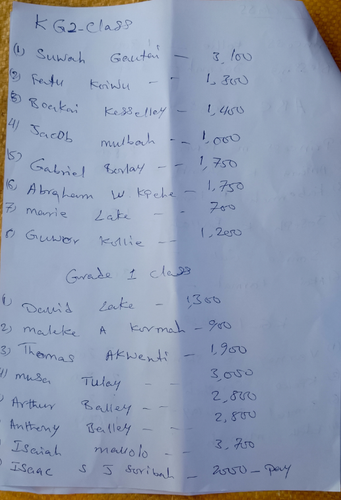 KG2-Class
(1) Suwah Gontai - 3,100
2) Fatu Koiwu - - 1,300
3) Boakai Kesselley - 1,400
4) Jacob mulbah - - 1,000
5) Gabriel Borlay - - 1,750
6) Abraham W Kpehe - 1,750
7) marie Lake - - 700
8) Guwor Kollie - - 1,200
Grade 1 class
1) David Lake - 1,300
2) maleke A Kormah - 900
3) Thomas AKwenti - 1,900
4) musa Tulay - - 3,050
) Arthur Balley - - 2,800
Anthony Balley - - 2,800
) Isaiah mallolo - - 3,700
Isaac S J Soribah - 2000 - pay